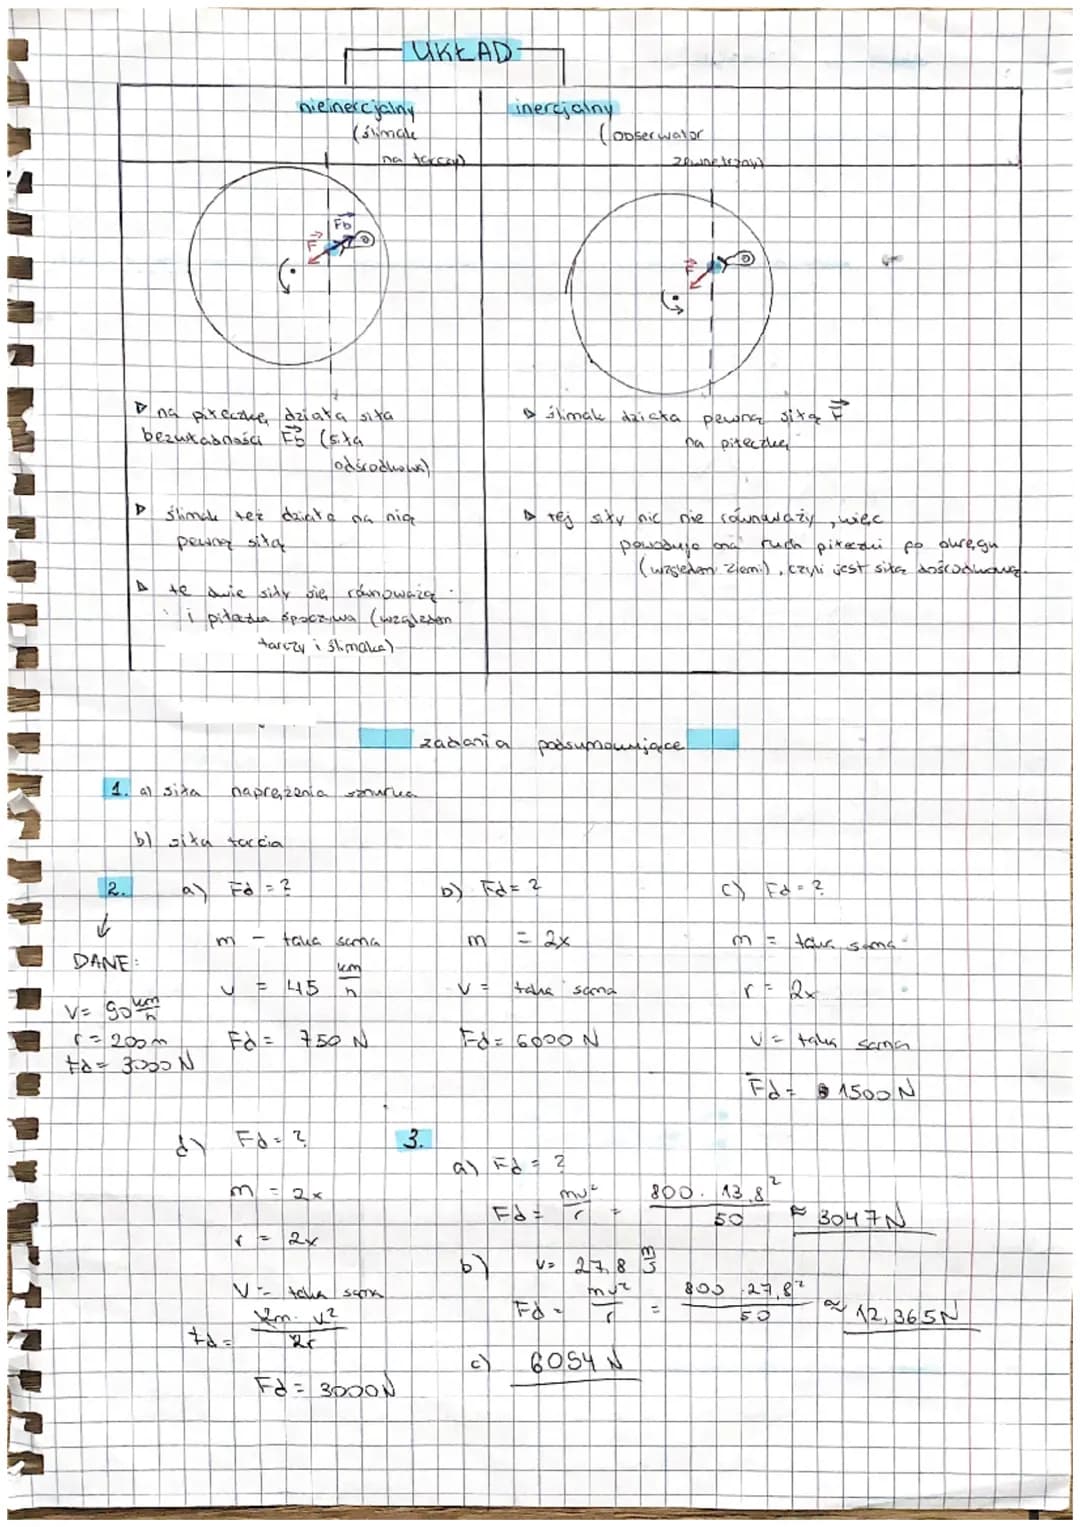 UKŁAD
nieinercjalny
(ślimak
na tarczy)
inercjalny
(obserwator
zewnętrzny)
F
Fb
F
▷ na piłeczkę działa siła
bezwładności Fb (siła
odśrodkowa)
▷ ślimak też działa na nią
pewną siłą
▷ te dwie siły się równoważą
i piłeczka spoczywa (względem
tarczy i ślimaka)
▷ ślimak działa pewną siłą F
na piłeczkę
▷ tej siły nic nie równoważy, więc
powoduje ona ruch piłeczki po okręgu
(względem ziemi), czyli jest siłą dośrodkową.
zadania podsumowujące
1. a) siła naprężenia sznurka
b) siła tarcia
2.
DANE:
v = 90 km/h
r = 200 m
Fd = 3000 N
a) Fd = ?
m - taka sama
v = 45 km/h
Fd = 750 N
b) Fd = ?
m = 2x
v = taka sama
Fd = 6000 N
c) Fd = ?
m = taka sama
r = 2x
v = taka sama
Fd = 1500 N
d) Fd = ?
m = 2x
r = 2x
v = taka sama
Fd = 2m · v² / 2r
Fd = 3000N
3.
a) Fd = ?
Fd = mv²/r = 800 · 13,8² / 50 ≈ 3047N
b) v = 27,8 m/s
Fd = mv²/r = 800 · 27,8² / 50 ≈ 12,365N
c) 6054 N